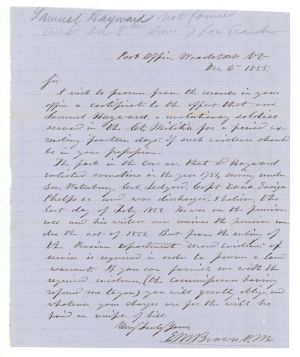 Samuel Hayward Not found
Post Office Woodstock Vt
Dec 6th 1855.
Sir
I wish to procure from the records in your
office a certificate to the effect that one
Samuel Hayward a revolutionary soldier
served in the Ct. Militia for a period ex-
ceeding fourteen days: if such evidence should
be in your possession.
The facts in the case are, that S Hayward
enlisted sometime in the year 1781, serving under
Gen. Waterbury, Col. Capt Dana, Ensign
Phelps and was discharged, I believe, the
last day of July. He was on the pension
and his widow now receives the pension un-
der the act of 1853. But from the ruling of
the Pension department record evidence of
service is required in order to procure a land
warrant. If you can furnish me with the
required evidence, (the commissioner having
referred me to you) you will greatly oblige and
whatever your charges are for the will be
paid on receipt of bill.
Very truly yours